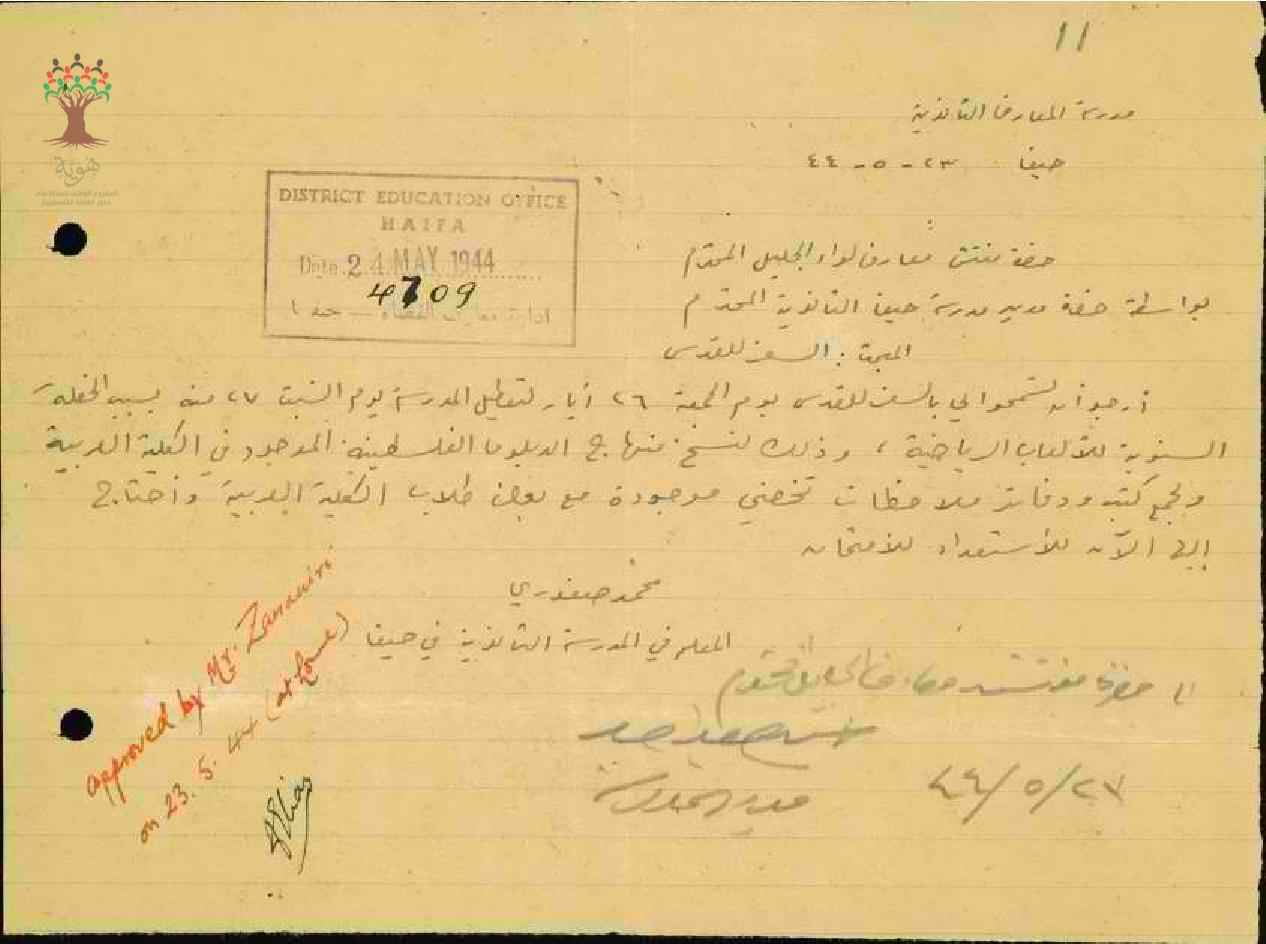 ١١
مدرسة المعارف الثانوية
حيفا ٢٣ - ٥ - ٤٤
هوية
المشروع الوطني للحفاظ على
جذور العائلة الفلسطينية
DISTRICT EDUCATION OFFICE
HAIFA
Date 24 MAY 1944
4709
ادارة معارف القضاء — حيفا
حضرة مفتش معارف لواء الجليل المحترم
بواسطة حضرة مدير مدرسة حيفا الثانوية المحترم
المبحث : السفر للقدس
أرجو أن تسمحوا لي بالسفر للقدس يوم الجمعة ٢٦ أيار لتعطيل المدرسة يوم السبت ٢٧ منه بسبب الحفلة
السنوية للألعاب الرياضية ، وذلك لنسخ منهاج الدبلوما الفلسطينية الموجود في الكلية العربية
ولجمع كتب ودفاتر ملاحظات تخصني موجودة مع بعض طلاب الكلية العربية وأحتاج
إليها الآن للأستعداد للأمتحان
محمد صفوري
المعلم في المدرسة الثانوية في حيفا
حضرة مفتش معارف الجليل المحترم
مدير المدرسة
٤٤/٥/٢٣
approved by Mr. Zananiri
on 23. 5. 44 (at home)